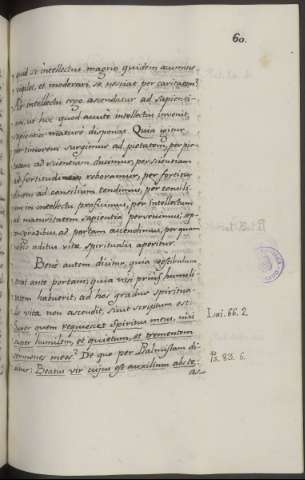 60.
quid si intellectus magno quidem acumine
vigilet, et moderari se nesciat per caritatem?
Ab intellectu ergo ascenditur ad sapienti-
am, ut hoc quod acute intellectus invenit,
sapientia mature disponat. Quia igitur
per timorem surgimus ad pietatem, per pie-
tatem ad scientiam ducimur, per scientiam
ad fortitudinem roboramur, per fortitu-
dinem ad consilium tendimus, per consili-
um in intellectu proficimus, per intellectum
ad maturitatem sapientiæ pervenimus, sep-
tem gradibus ad portam ascendimus, per quam
nobis aditus vitæ spiritualis aperitur.
Bene autem dicitur, quia vestibulum
erat ante portam; quia nisi prius humili-
tatem habuerit, ad hos gradus spiritua-
lis vitæ non ascendit, sicut scriptum est:
Super quem requiescet Spiritus meus, nisi
super humilem, et quietum, et trementem
sermones meos? De quo per Psalmistam di-
citur: Beatus vir cujus est auxilium abs te
as-
Isai. 66. 2
Ps. 83. 6.